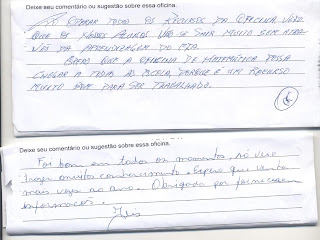 Deixe seu comentário ou sugestão sobre essa oficina.
TODO OS RECURSOS DA OFICINA VEJO
QUE OS NOSSOS ALUNOS VÃO SE SAIR MUITO BEM ATRA-
VÉS DA APRENDIZAGEM DO DIA
QUE A OFICINA DE MATEMÁTICA POSSA
CHEGAR A TODAS AS ESCOLA, PORQUE É UM RECURSO
MUITO BOM PARA SER TRABALHADO.
Deixe seu comentário ou sugestão sobre essa oficina.
Foi bom em todos os momentos, só veio
trazer muitos conhecimento. Espero que venha
mais vezes no ano. Obrigada por fornecerem
informações.